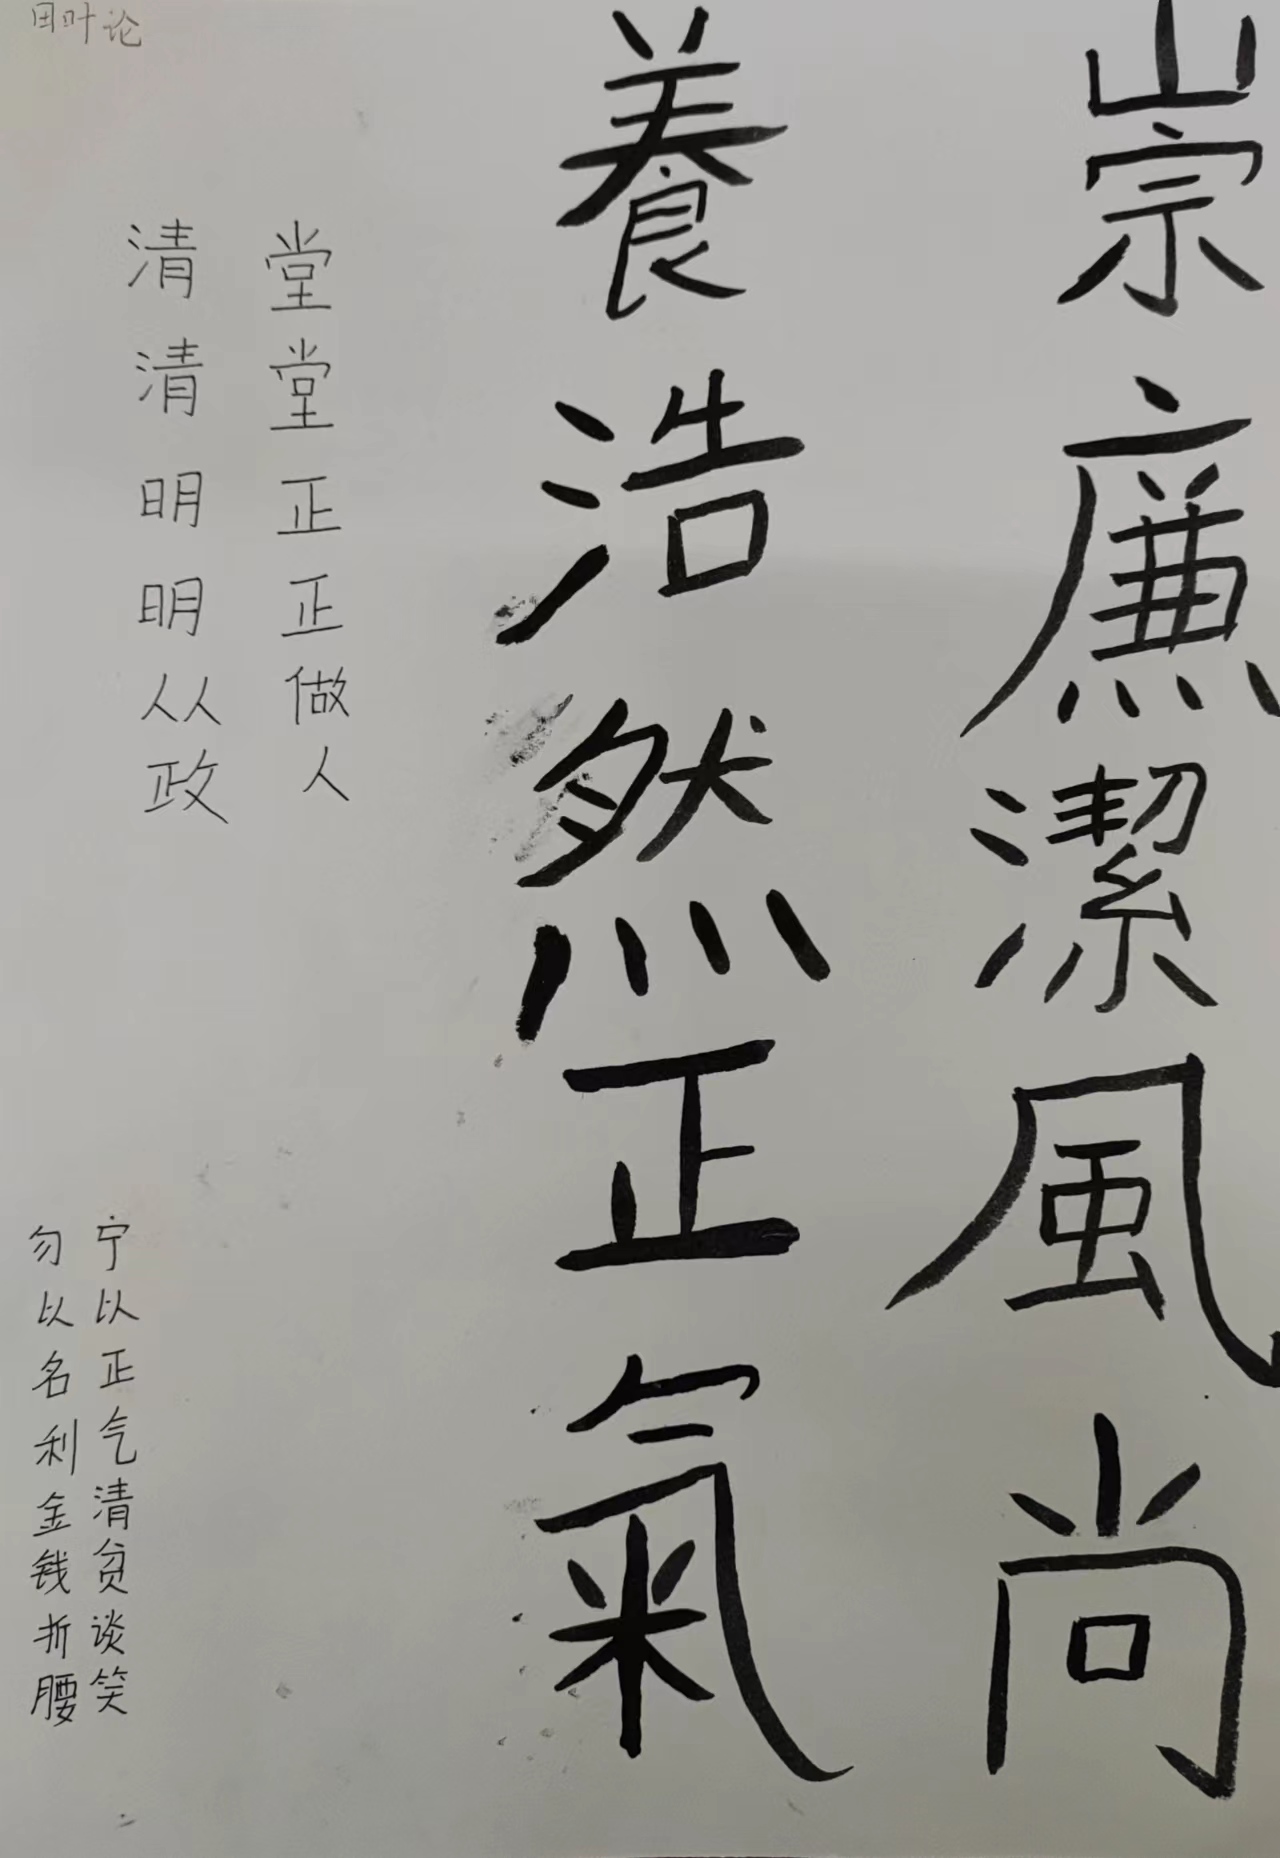 崇廉潔風尚
養浩然正氣
堂堂正正做人
清清明明从政
宁以正气清贫谈笑
勿以名利金钱折腰
田叶论